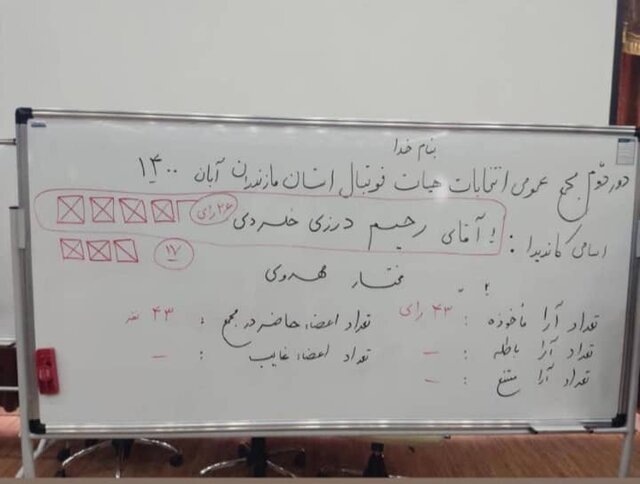 بنام خدا
دور دوّم مجمع عمومی انتخابات هیات فوتبال استان مازندران آبان ۱۴۰۰
اسامی کاندیدا : ۱ آقای رحیم درزی خلردی ۲۶ رای
۲ مختار مهدوی ۱۷
تعداد آرا مأخوذه : ۴۳ رای تعداد اعضاء حاضر در مجمع : ۴۳ نفر
تعداد آرا باطله : – تعداد اعضاء غایب : –
تعداد آرا ممتنع –